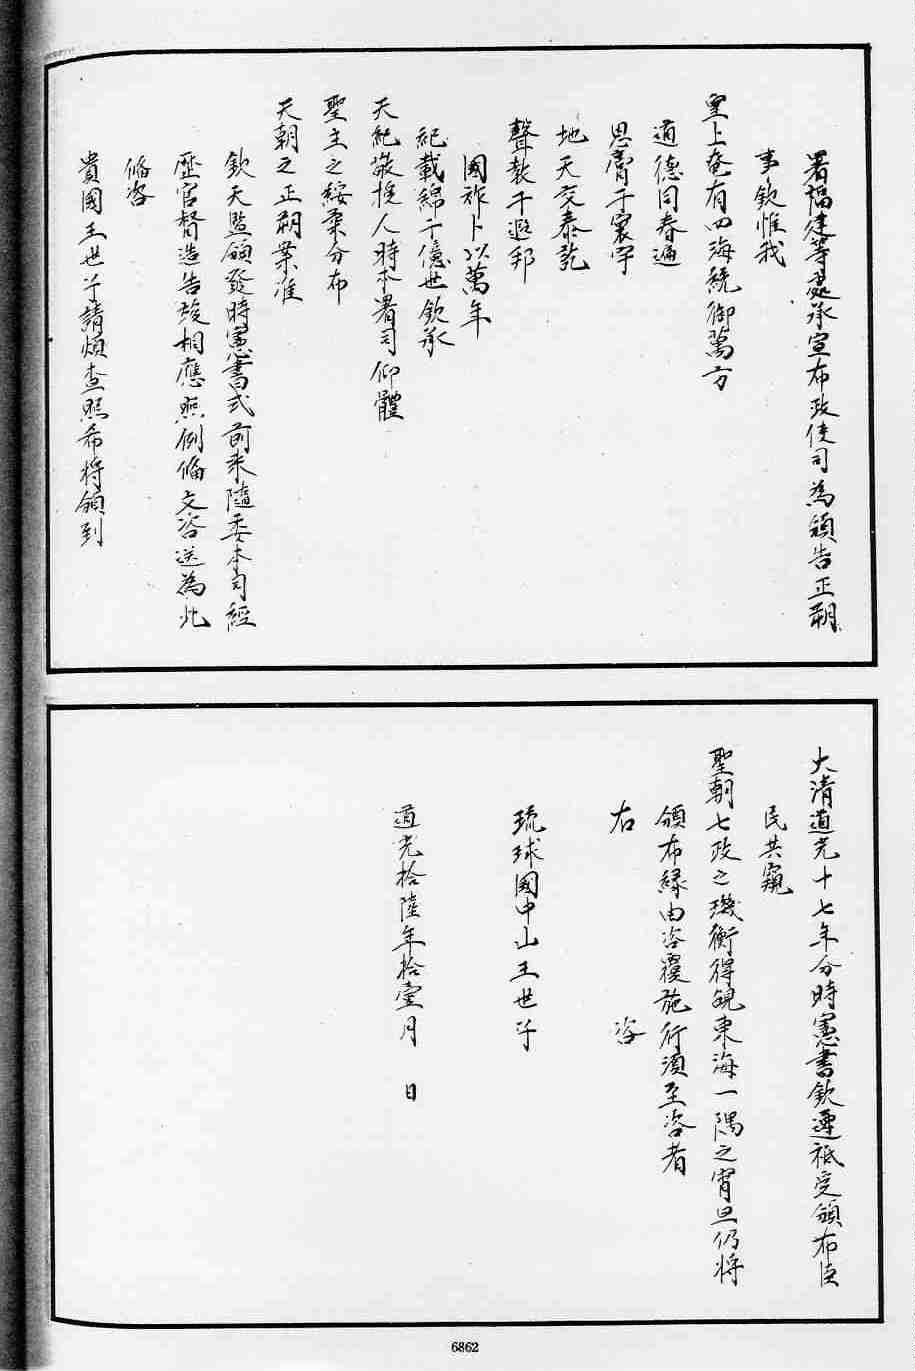 署福建等處承宣布政使司為頒告正朔
事欽惟我
皇上奄有四海統御萬方
道德同春遍
恩膏于寰宇
地天交泰乾
聲教于遐邦
國祚卜以萬年
紀載綿于億世欽承
天紀敬授人時本署司仰體
聖主之綏柔分布
天朝之正朔業准
欽天監頒發時憲書式前来隨委本司經
歷官督造告竣相應照例備文咨送為此
備咨
貴國王世子請煩查照希将頒到
大清道光十七年分時憲書欽遵祗受頒布臣
民共窺
聖朝七政之璣衡得覩東海一隅之宵旦仍将
頒布緣由咨覆施行須至咨者
右咨
琉球國中山王世子
道光拾陸年拾壹月 日
6862